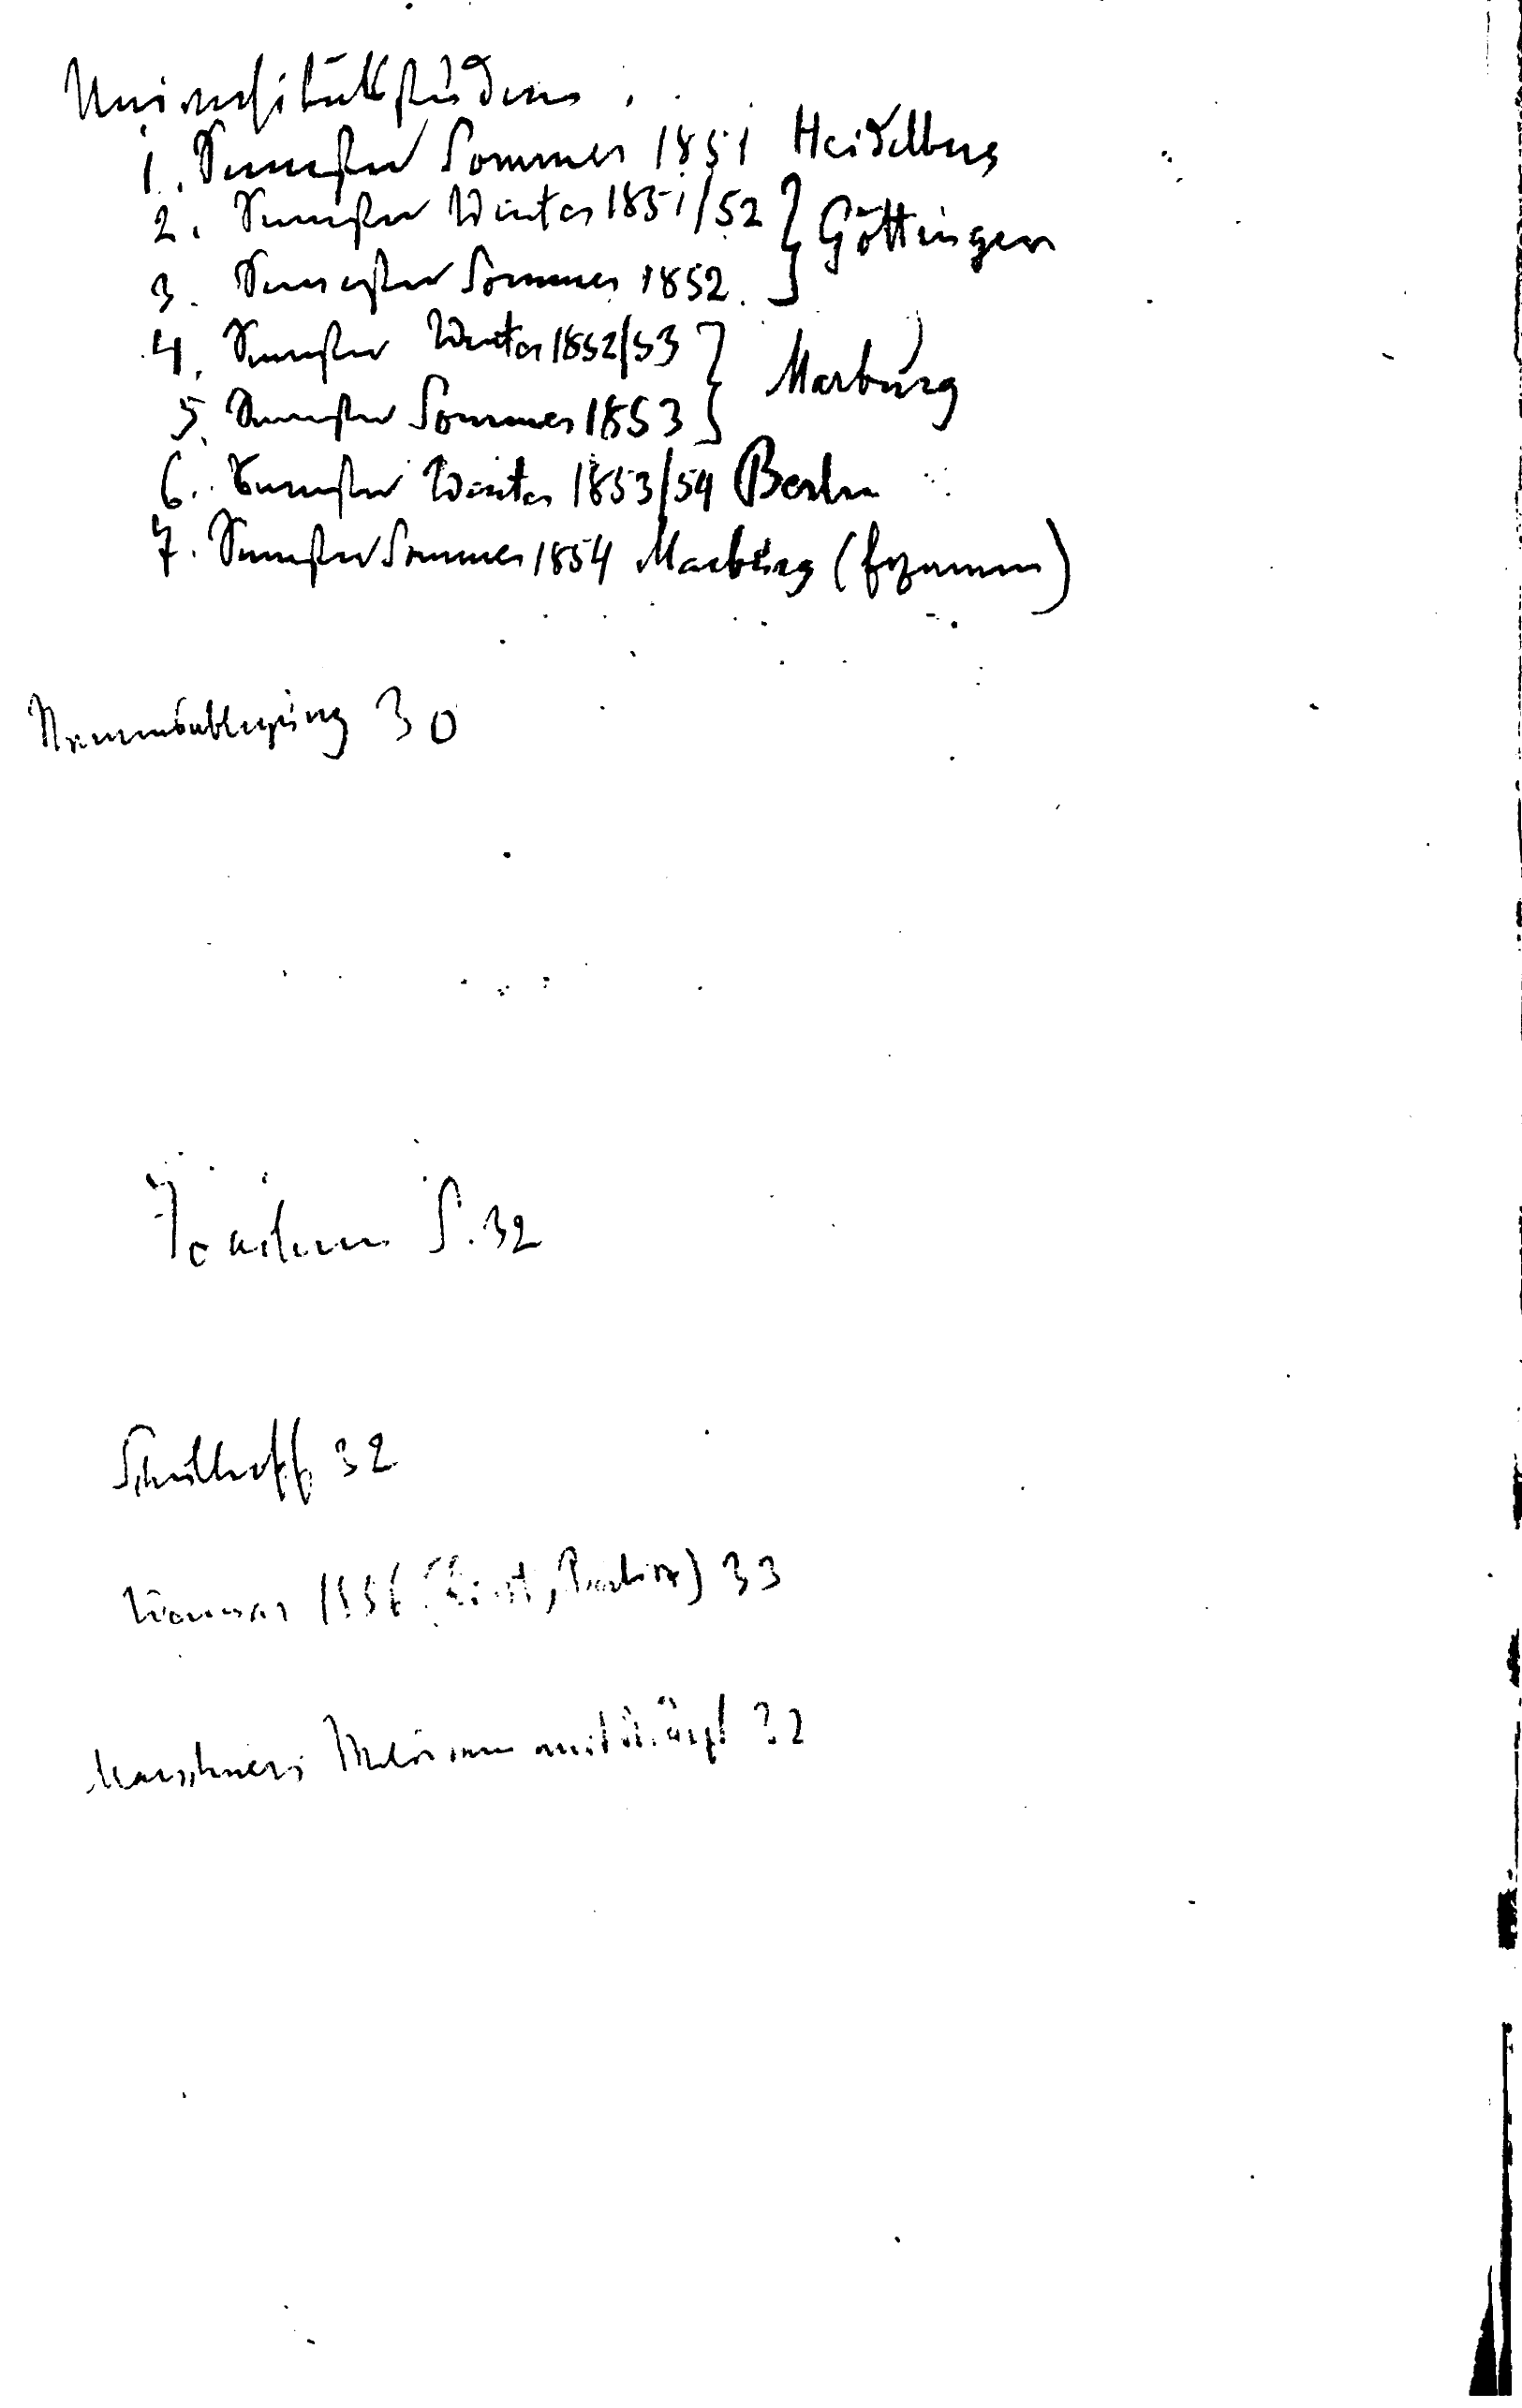 Universitätsstudium.
1. Semester Sommer 1851 Heidelberg
2. Semester Winter 1851/52 } Göttingen
3. Semester Sommer 1852.
4. Semester Winter 1852/53 } Marburg
5. Semester Sommer 1853
6. Semester Winter 1853/54 Berlin
7. Semester Sommer 1854 Marburg (Examen)
30
Joachim S. 32
Schulhoff 32
Weimar 1856 (Liszt, Berlioz) 33
Marschners 32